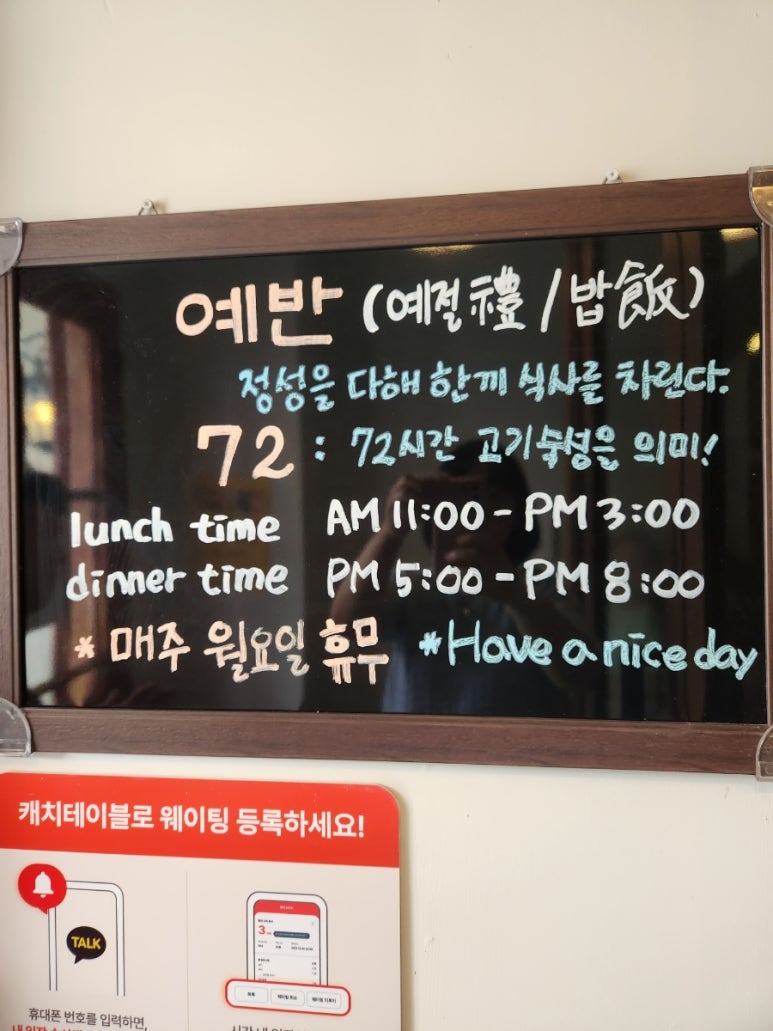 예반 (예절禮/밥飯)
정성을 다해 한끼 식사를 차린다.
72 : 72시간 고기숙성을 의미!
lunch time AM 11:00 - PM 3:00
dinner time PM 5:00 - PM 8:00
* 매주 월요일 휴무 *Have a nice day
캐치테이블로 웨이팅 등록하세요!
TALK
3
휴대폰 번호를 입력하면,